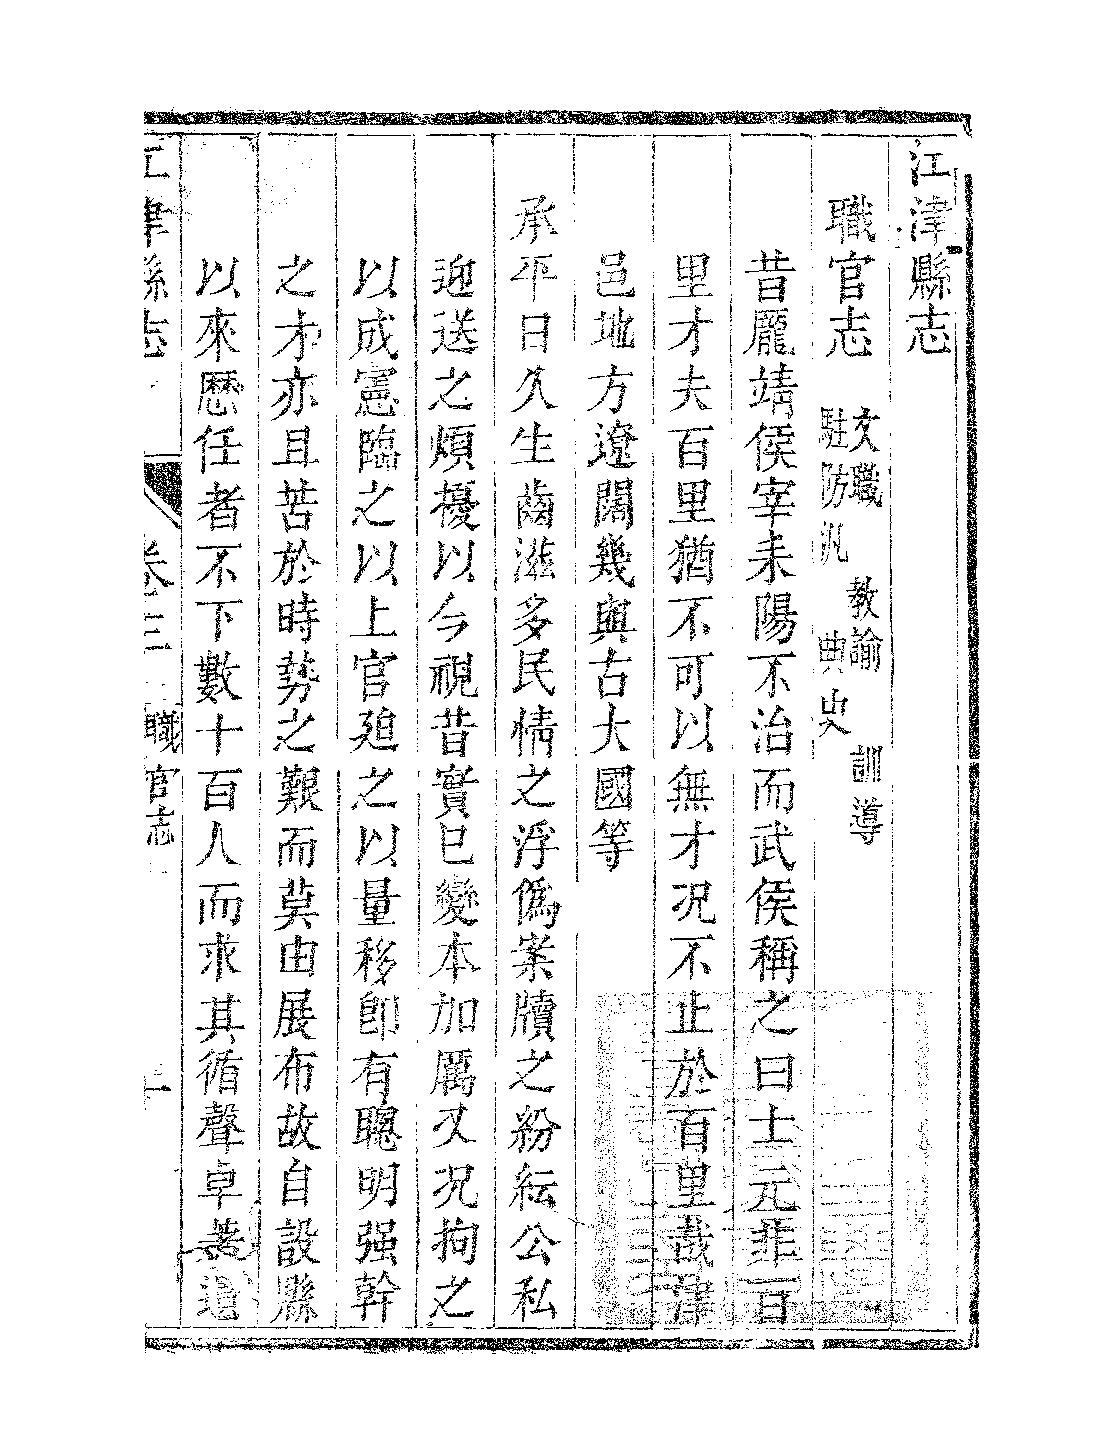 江津縣志
職官志 文職 教諭 訓導 駐防汛 典史
昔龐靖侯宰耒陽不治而武侯稱之曰士元非百
里才夫百里猶不可以無才况不止於百里哉津
邑地方遼闊幾與古大國等
承平日久生齒滋多民情之浮僞案牘之紛紜公私
迎送之煩擾以今視昔實已變本加厲又况拘之
以成憲臨之以上官廹之以量移卽有聰明强幹
之才亦且苦於時勢之艱而莫由展布故自設縣
以來歷任者不下數十百人而求其循聲卓著
江津縣志 卷三 職官志